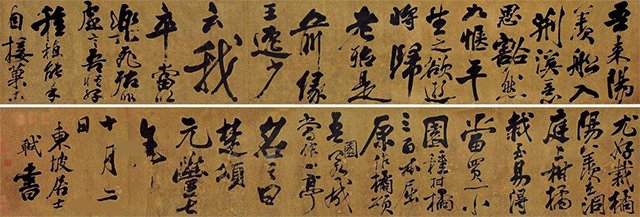 吾來陽
羨船入
荊溪意
思豁然
如惬平
生之欲逝
將歸
老殆是
前緣
王逸少
云我
卒當以
樂死殆非
虛言吾性好
種植能手
自接果木
尤好栽橘
陽羨在洞
庭上柑橘
栽至易得
當買一小
園種柑橘
三百本屈
原作橘頌
吾園若成
當作一亭
名之曰
楚頌
元豐七
年
十月二
日
東坡居士
軾書